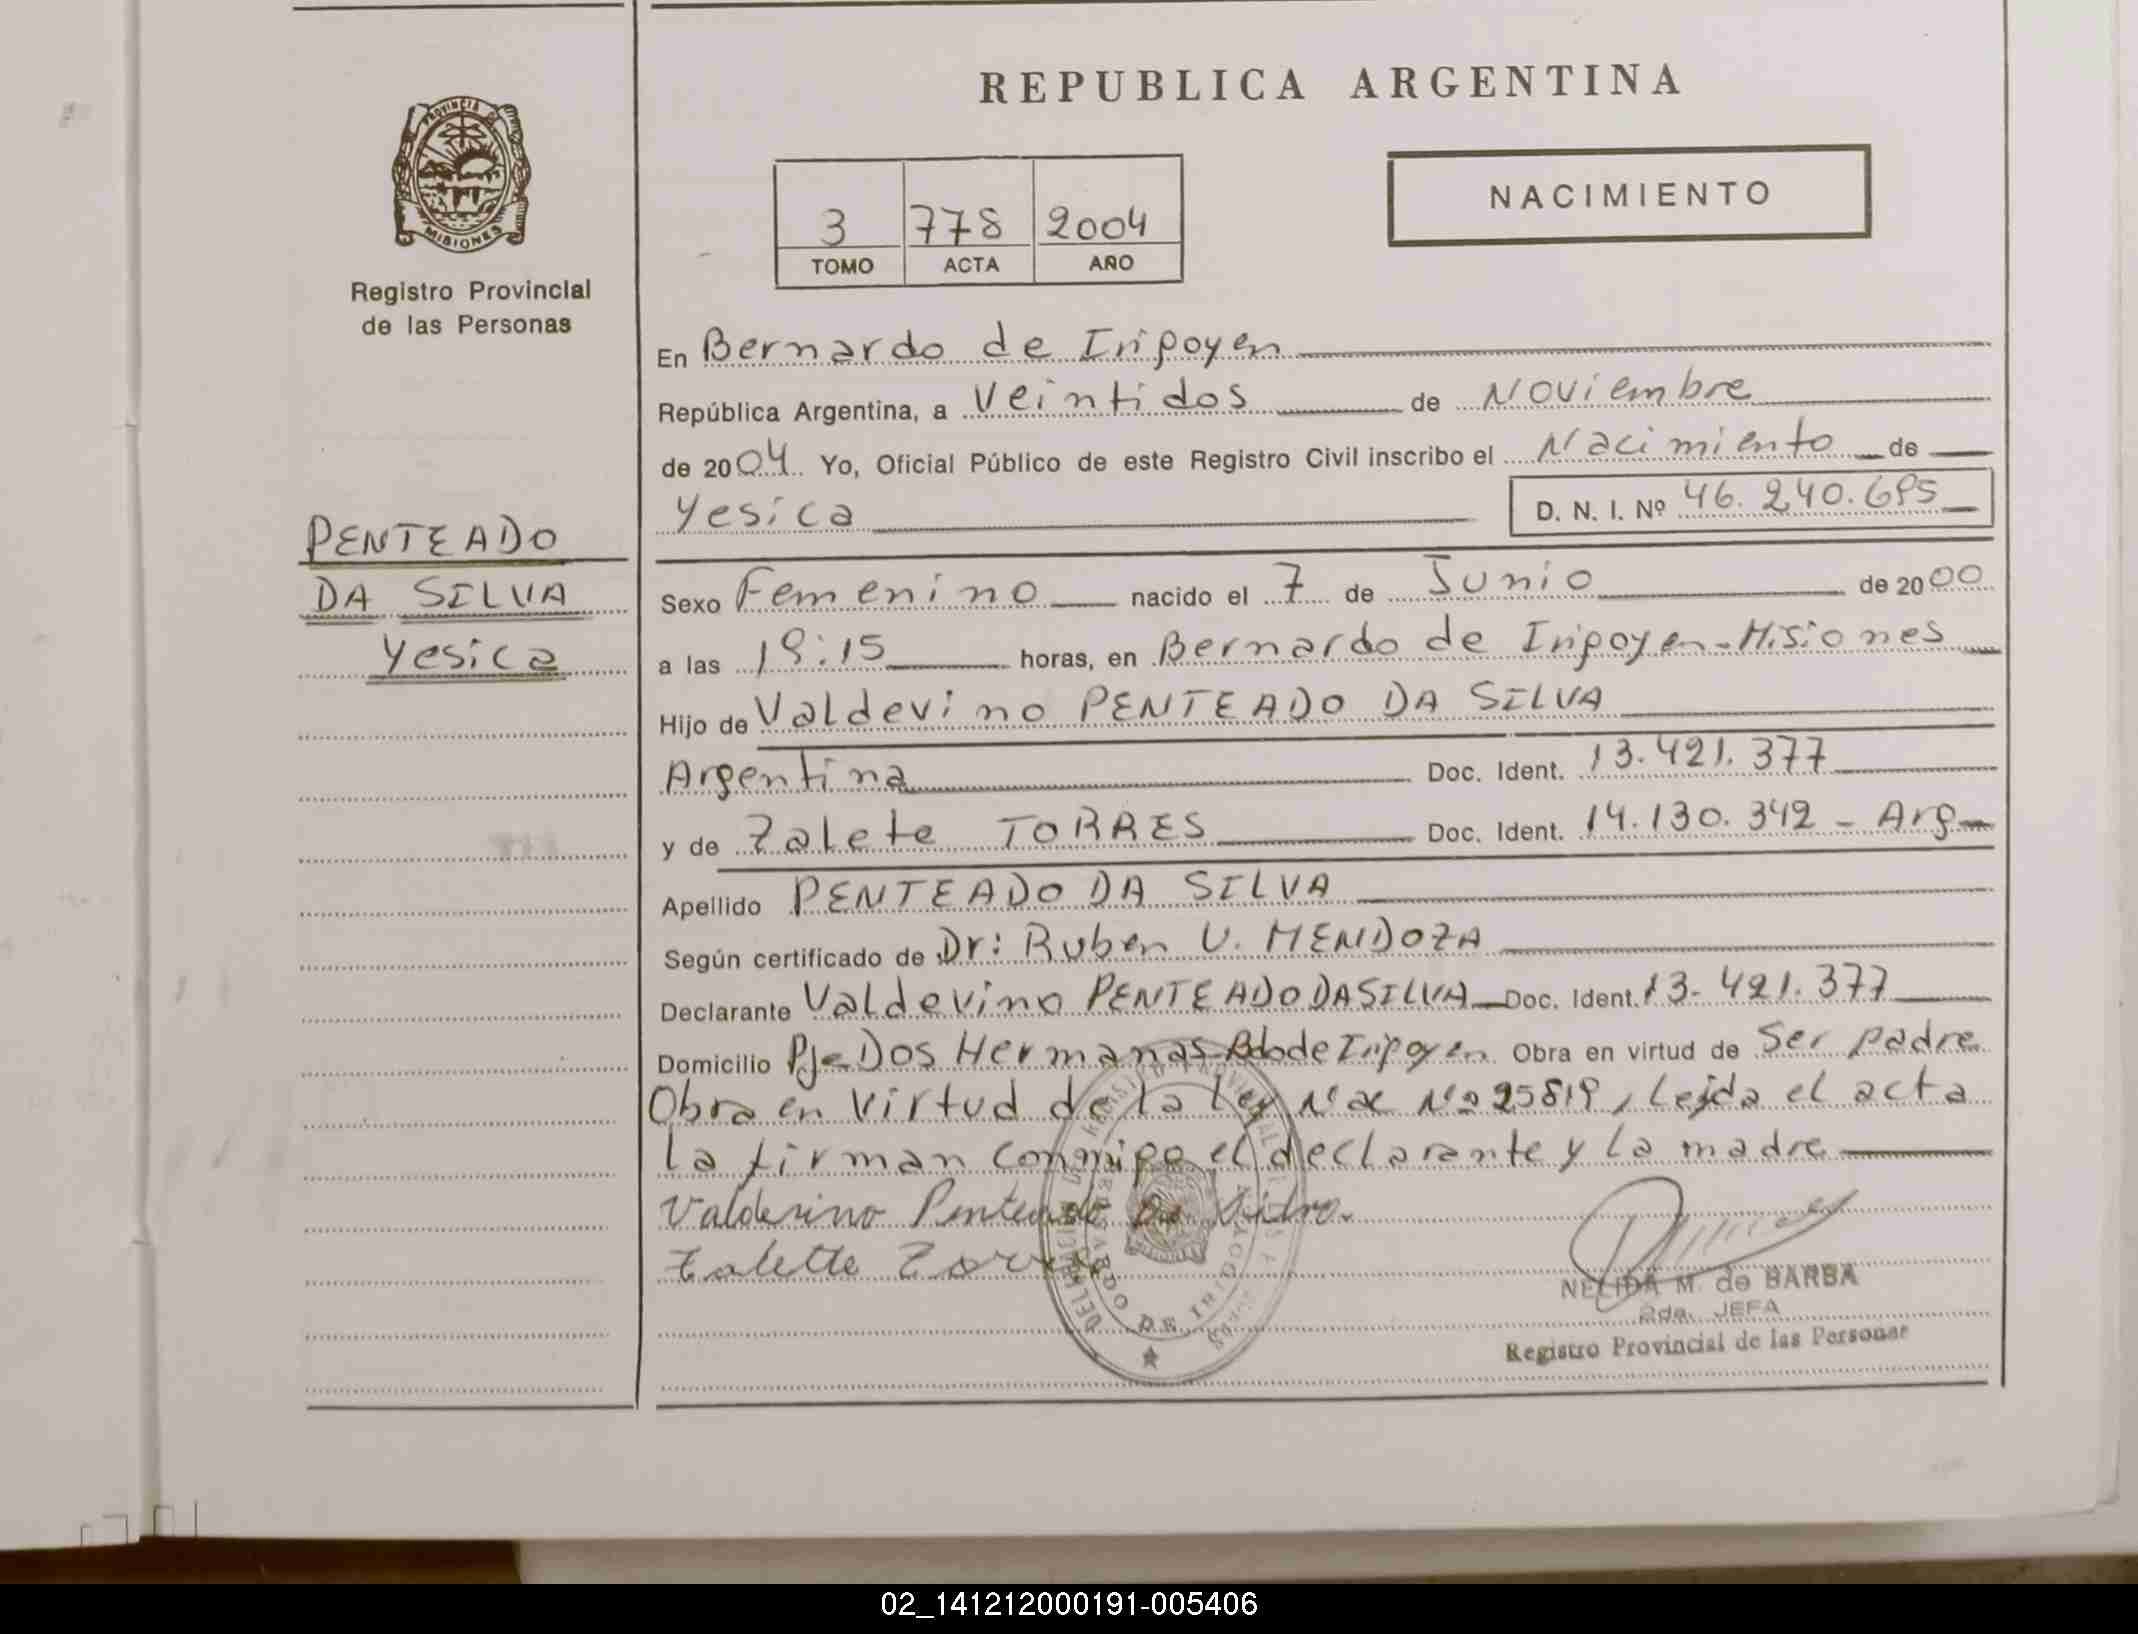 REPUBLICA ARGENTINA
PROVINCIA DE
MISIONES
Registro Provincial
de las Personas
3 778 2004
TOMO ACTA AÑO
NACIMIENTO
En Bernardo de Iripoyen
República Argentina, a Veintidos de Noviembre
de 2004. Yo, Oficial Público de este Registro Civil inscribo el Nacimiento de
Yesica D. N. I. Nº 46.240.695
PENTEADO
DA SILVA
Yesica
Sexo Femenino nacido el 7 de Junio de 2000
a las 19:15 horas, en Bernardo de Iripoyen-Misiones
Hijo de Valdevino PENTEADO DA SILVA
Argentina Doc. Ident. 13.421.377
y de Zalete TORRES Doc. Ident. 14.130.342 - Arg-
Apellido PENTEADO DA SILVA
Según certificado de Dr: Ruben V. MENDOZA
Declarante Valdevino PENTEADO DA SILVA Doc. Ident. 13.421.377
Domicilio Pje Dos Hermanas-Bdo de Iripoyen Obra en virtud de Ser padre
Obra en virtud de la Ley Nac Nº 25819, Leída el acta
la firman conmigo el declarante y la madre
Valdevino Penteado Da
Zalette
DE IRIGOYEN
NELIDA M. de BARBA
2da. JEFA
Registro Provincial de las Personas
02_141212000191-005406